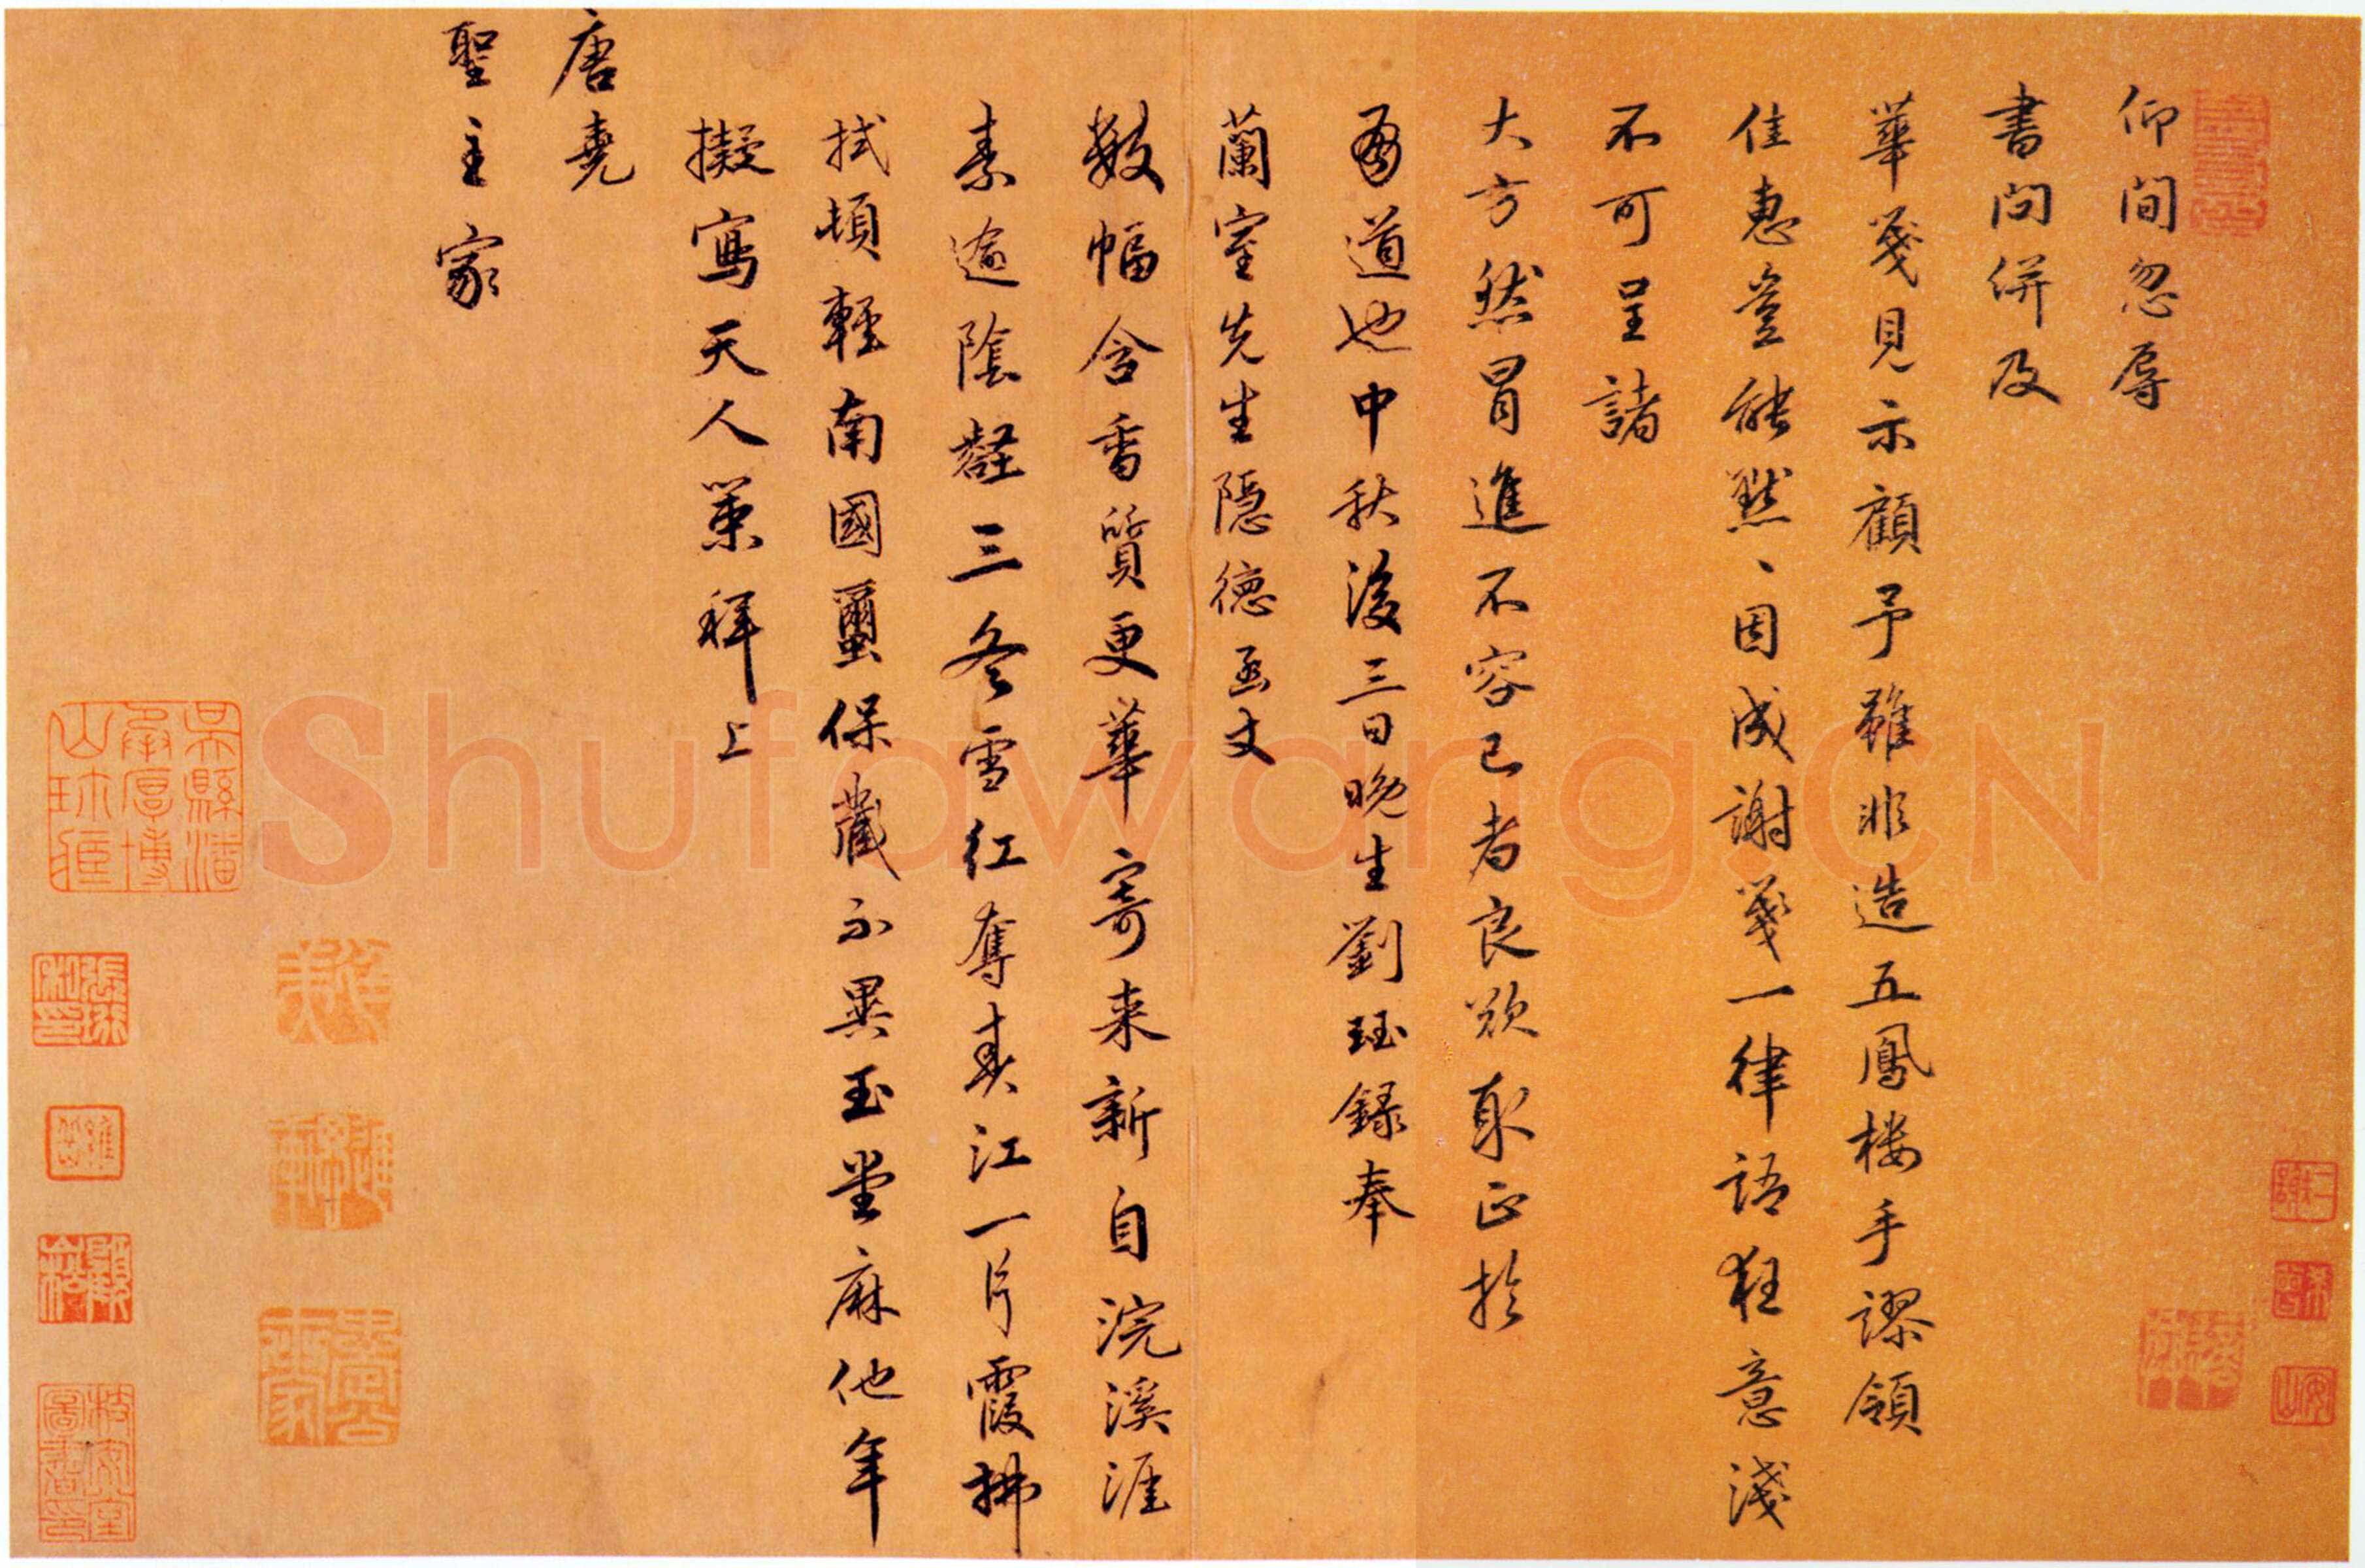 仰間忽辱
書問併及
華箋見示顧予雖非造五鳳楼手謬領
佳惠豈能黙、因成謝箋一律語狂意淺
不可呈諸
大方然冒進不容已者良欲取正於
有道也中秋後三日晚生劉珏録奉
蘭室先生隠德函丈
数幅含香質更華寄来新自浣溪涯
素逾陰壑三冬雪紅奪春江一片霞拂
拭頓輕南國蠒保藏不異玉堂麻他年
擬寫天人策拜上
唐堯
聖主家
吳縣潘承厚博山珍藏
張珩私印
Shufawang.CN